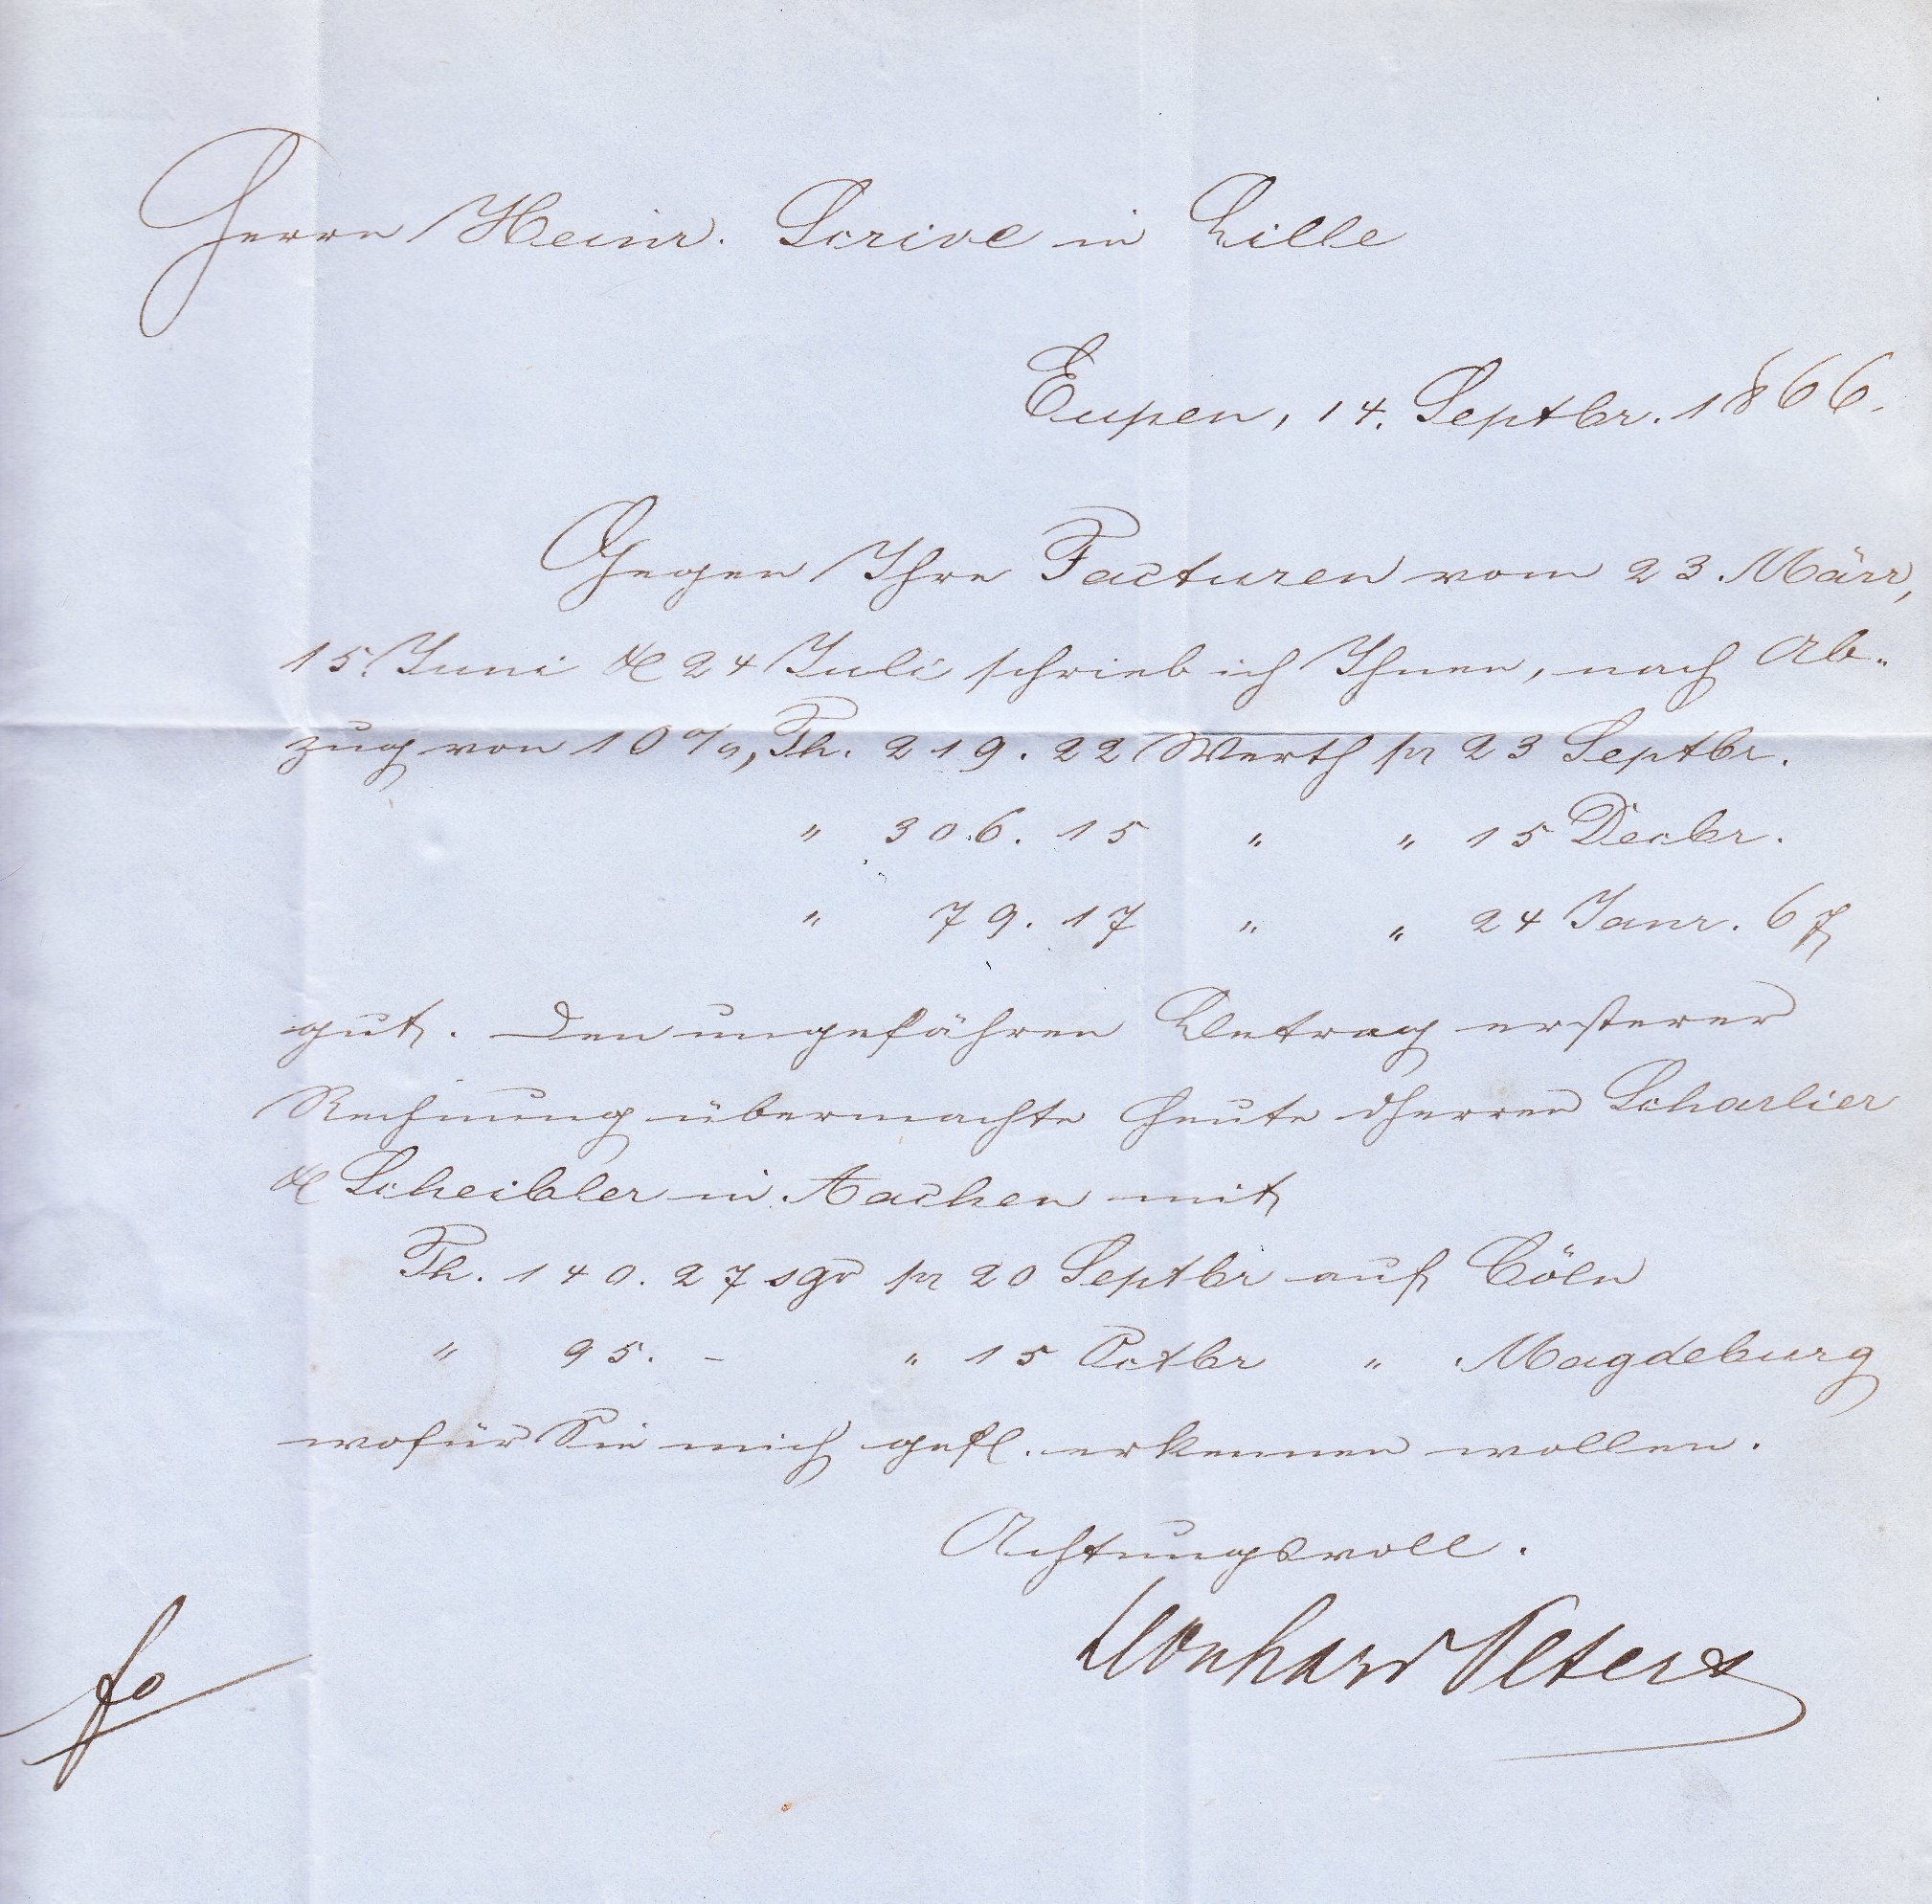 Herrn Heinr. Scrive in Lille
Eupen, 14. Septbr. 1866.
Gegen Ihre Facturen vom 23. März,
15. Juni & 24 Juli schrieb ich Ihnen, nach Ab-
zug von 10 %, Th. 219. 22 Werth pr 23 Septbr.
" 306. 15 " " 15 Decbr.
" 79. 17 " " 24 Janr. 67
gut. Den ungefähren Betrag ersterer
Rechnung übermachte heute dherren Scharlier
& Scheibler in Aachen mit
Th. 140. 27 sgr pr 20 Septbr auf Cöln
" 95. - " 15 Octbr " Magdeburg
wofür Sie mich gefl. erkennen wollen.
Achtungsvoll.
Leonhard Peters
fo